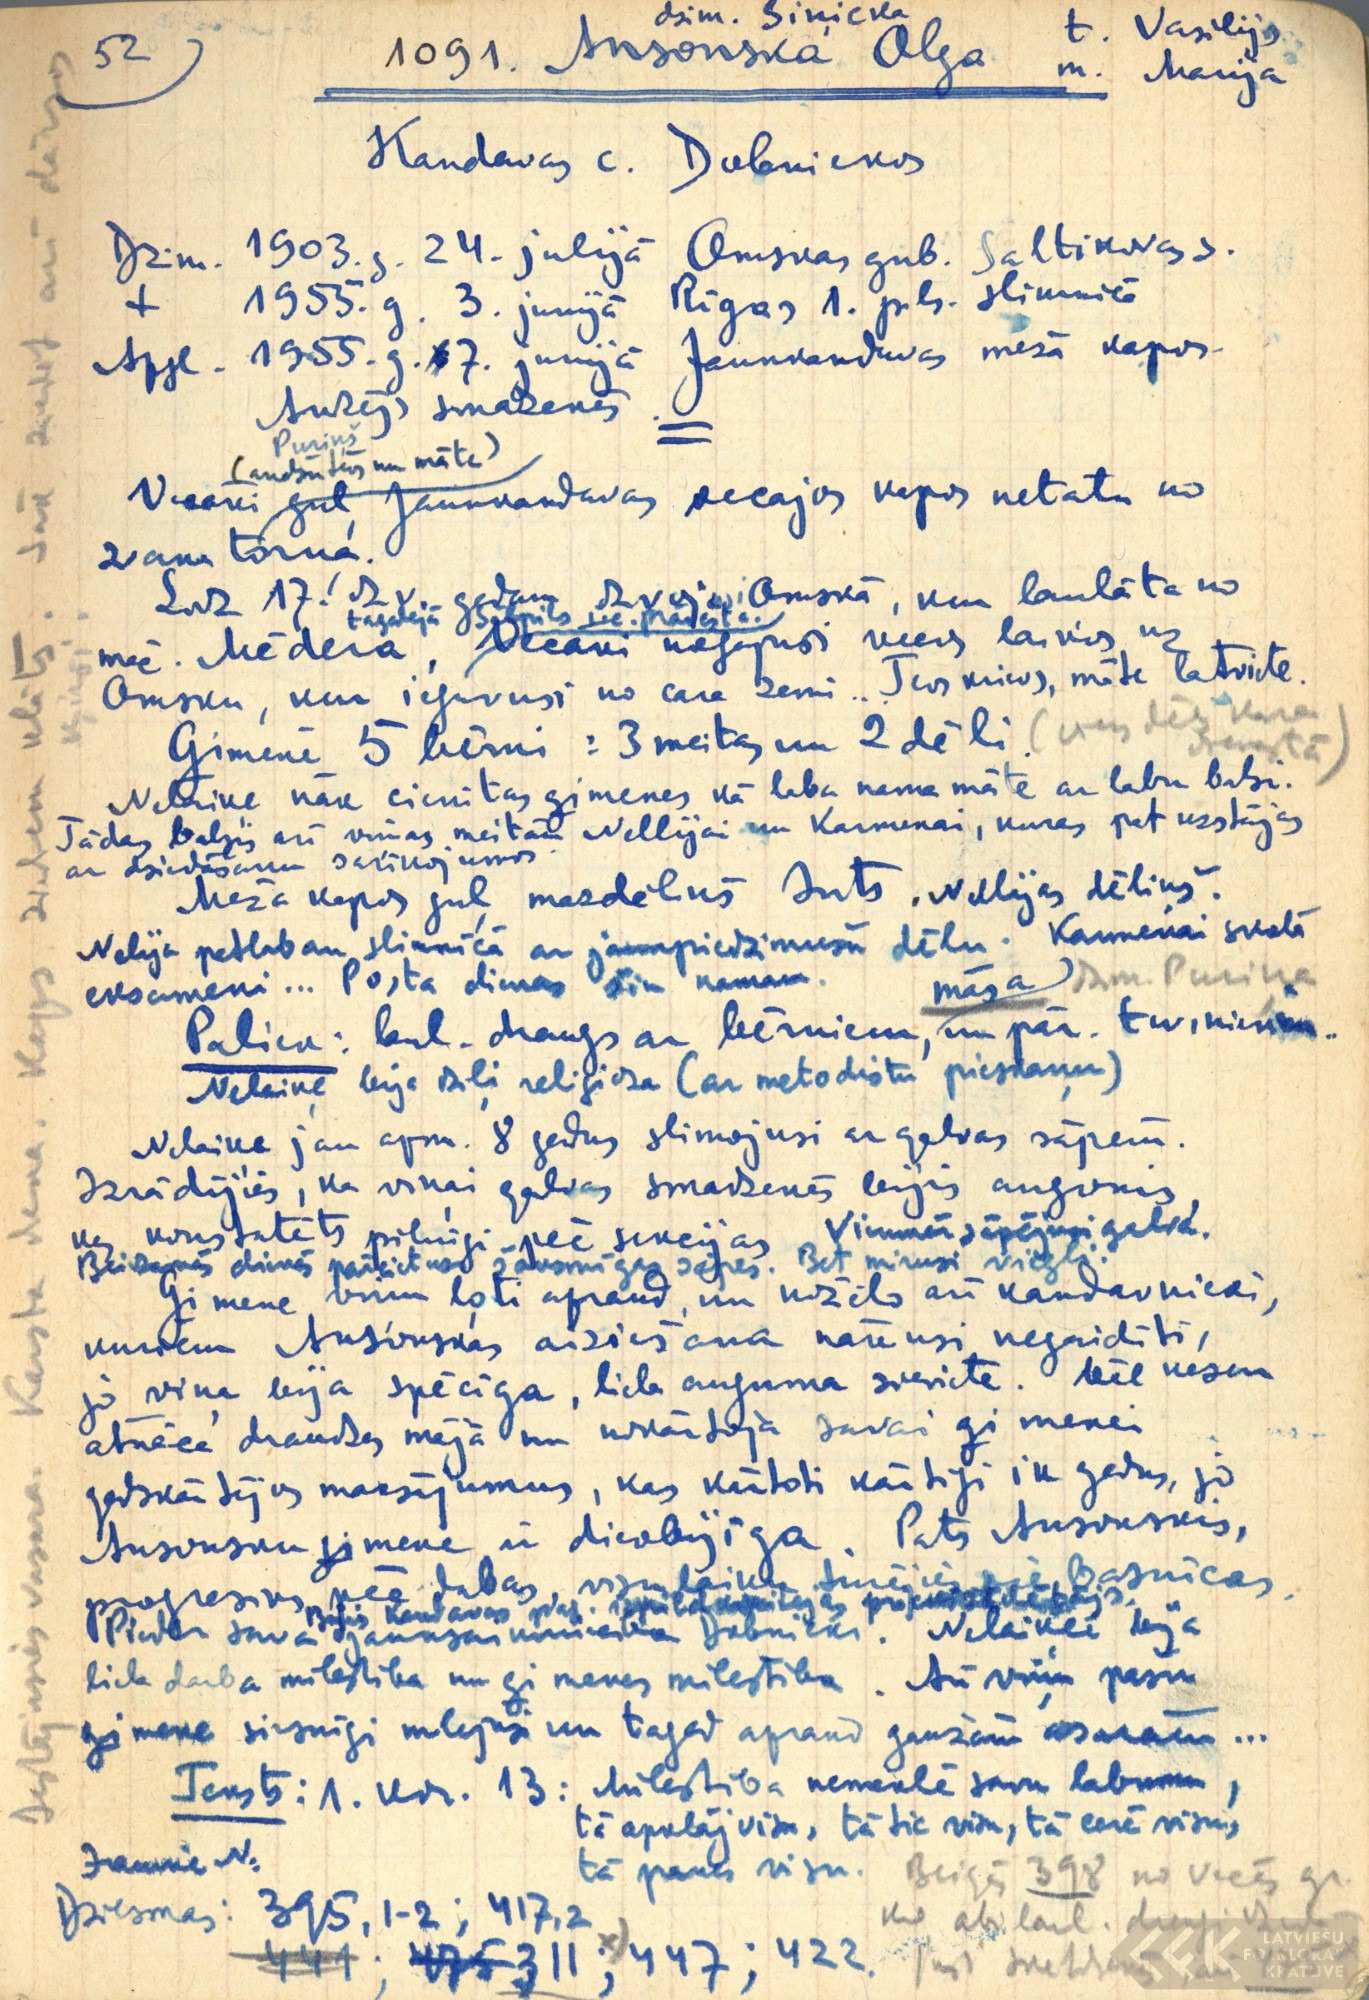 52
dzim. Siņicka
1091. Ansonska Olga
t. Vasilijs
m. Marija
Kandavas c. Dobnickos
Dzim. 1903.g. 24. julijā Omskas gub. Saltikovas s.
+ 1955.g. 3. junijā Rīgas 1. pils. slimnīcā
Apgl. 1955.g. 7. junijā Jaunkandavas mežā kapos
Audzējs smadzenēs.
Puriņš
(audžutēvs un māte)
Vecāki guļ Jaunkandavas vecajos kapos netatu no
zvana torņa.
Līdz 17. dzv. gadam dzvojusi Omskā, kur laulāta no
tagadējā Bīskaps
māc. Mēdera, Vecāki nogājuši vecos laikos uz
Omsku, kur ieguvusi no cara zemi.. Tēvs krievs, māte latviete.
Ģimenē 5 bērni: 3 meitas un 2 dēli. (viens dēls kara dienestā)
Nelaiķe nāk cienītas ģimenes kā laba nama māte ar labu balsi.
Tādas balsis arī viņas meitām Nellijai un Karmenai, kuras pat uzstājas
ar dziedāšanu sarīkojumos.
Meža kapos guļ mazdēliņš Ints. Nellijas dēliņš.
Nelija patlaban slimnīcā ar jaunpiedzimušu dēlu. Karmenai skolā
eksāmeni... Posta dienas šim namam.
māsa dzim. Puriņa
Paliek: laul. draugs ar bērniem, un pār. tuviniekiem..
Nelaiķe bija dziļi reliģioza (ar metodistu pieskaņu)
Nelaiķe jau apm. 8 gadus slimojusi ar galvas sāpēm.
Izrādījies, ka viņai galvas smadzenēs bijis augonis,
kas konstatēts pilnīgi pēc sekcijas Vienmēr sāpējusi galva.
Beidzamās dienās pārcietusi šausmīgas sāpes. Bet mirusi viegli.
Ģimene viņu ļoti apraud, un nožēlo arī kandavnieki,
kuriem Ansonskas aiziešana nākusi negaidīti,
jo viņa bija spēcīga, liela auguma sieviete. Vēl nesen
atnāca draudzes mājā un nokārtoja savai ģimenei
gadskārtējos maksājumus, kas kārtoti kārtīgi ik gadus, jo
Ansonsku ģimene ir dievbijīga. Pats Ansonskis,
progresīvs pēc dabas, visu laiku turējies pie Baznīcas.
Bijis Kandavas
Pieder sava jaunsaimniecība Dobnieki. Nelaiķei bija
liela darba mīlestība un ģimenes mīlestība. Arī viņu pašu
ģimene sirsnīgi mīlējusi un tagad apraud gaužām asarām...
Teksts: 1. Kor. 13: Mīlestība nemeklē savu labumu,
tā apklāj visu, tā tic visu, tā cerē visu,
tā panes visu.
Beigās 398 no vecās gr.
Dziesmas: 395, 1-2; 417,2
441; 311; x) 447; 422.
Iestājusies vasara. Karsta diena. Kaps ziediem klāts.
LATVIEŠU
FOLKLORAS
KRĀTUVE